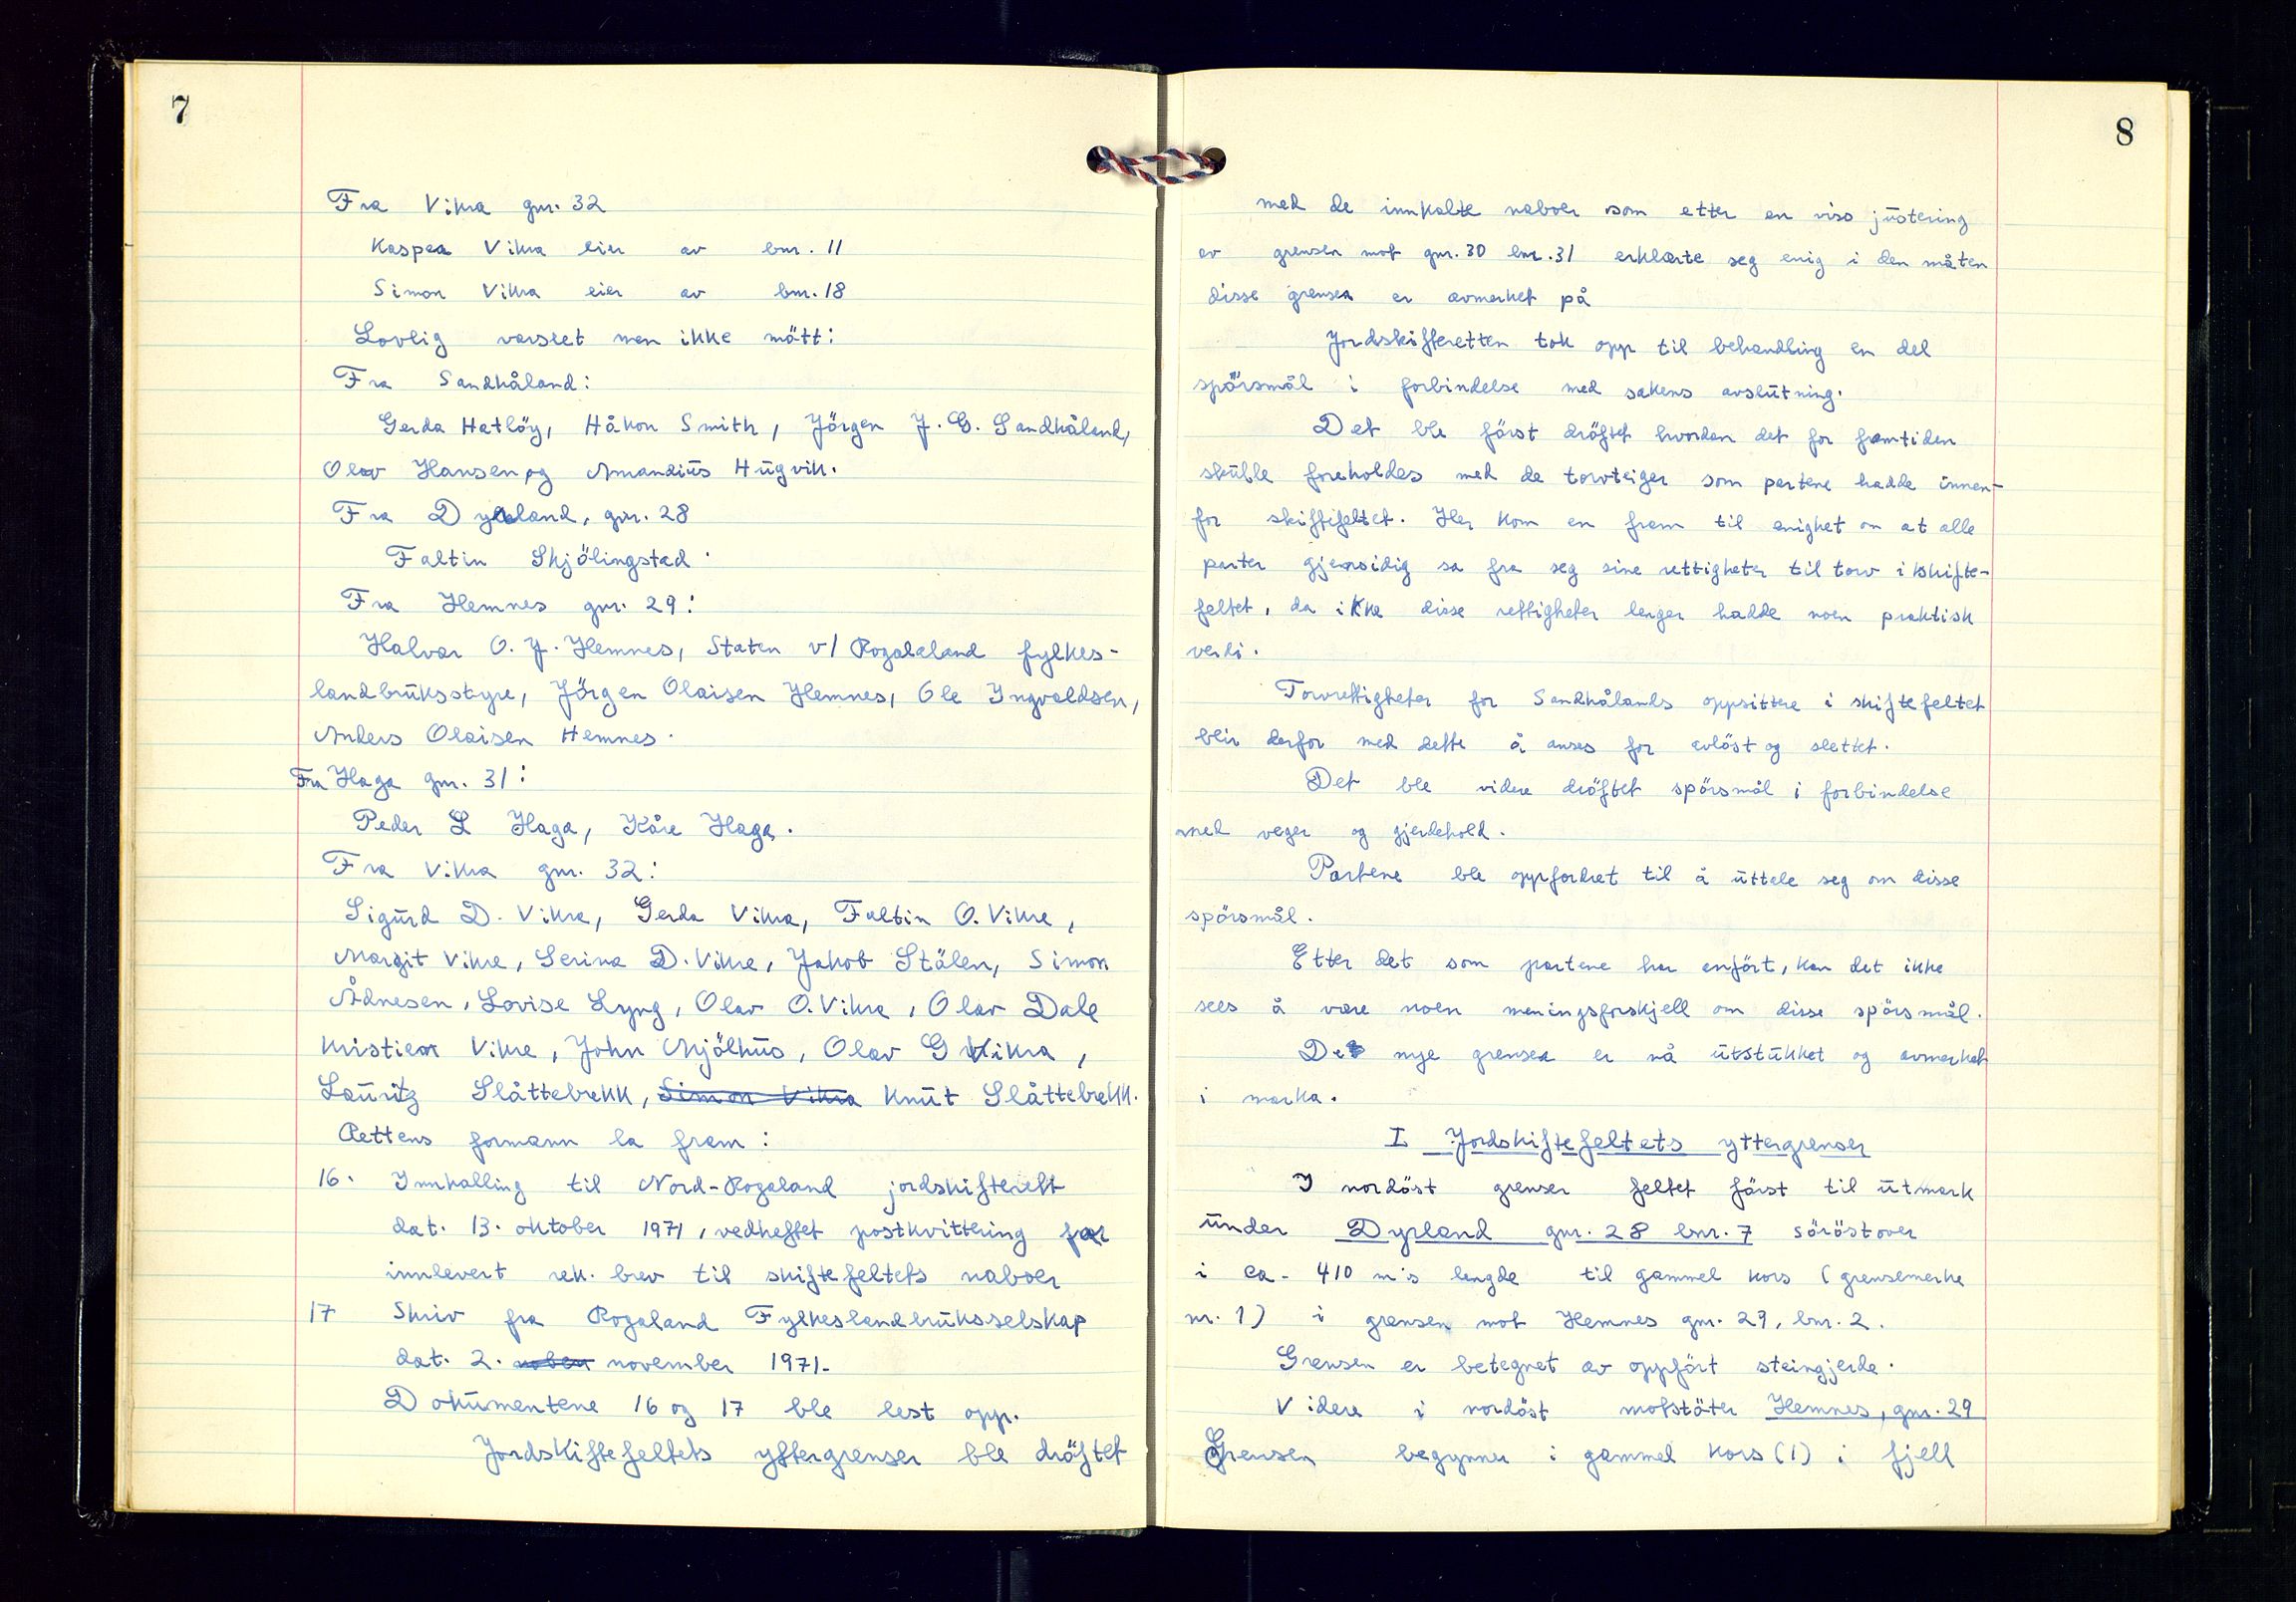 7
Fra Vikra gnr. 32
Kasper Vikra eier av bnr. 11
Simon Vikra eier av bnr. 18
Lovlig varslet men ikke mött:
Fra Sandhåland:
Gerda Hatlöy, Håkon Smith, Jörgen J. G. Sandhåland,
Olav Hansen og Amandius Hugvik.
Fra Dyrland, gnr. 28
Faltin Skjölingstad.
Fra Hemnes gnr. 29:
Halvor O. J. Hemnes, Staten v/ Rogalaland fylkes-
landbruksstyre, Jörgen Olaisen Hemnes, Ole Ingvaldsen,
Anders Olaisen Hemnes.
Fra Haga gnr. 31:
Peder L Haga, Kåre Haga.
Fra Vikra gnr. 32:
Sigurd D. Vikra, Gerda Vikra, Faltin O. Vikre,
Margit Vikre, Serina D. Vikre, Jakob Stålen, Simon
Ådnesen, Lovise Lyng, Olav O. Vikra, Olav Dale
Kristian Vikre, John Mjölhus, Olav G Vikra,
Lauritz Slåttebrekk, Simon Vikra Knut Slåttebrekk.
Rettens formann la fram:
16. Innkalling til Nord-Rogaland jordskifterett
dat. 13. oktober 1971, vedheftet postkvittering for
innlevert rek. brev til skiftefeltets naboer
17 Skriv fra Rogaland Fylkeslandbruksselskap
dat. 2. november 1971.
Dokumentene 16 og 17 ble lest opp.
Jordskiftefeltets yttergrenser ble dröftet
8
med de innkalte naboer som etter en viss justering
av grensen mot gnr. 30 bnr. 31 erklærte seg enig i den måten
disse grenser er avmerket på
Jordskifteretten tok opp til behandling en del
spörsmål i forbindelse med sakens avslutning.
Det ble först dröftet hvordan det for framtiden
skulle foreholdes med de torvteiger som partene hadde innen-
for skiftefeltet. Her kom en fram til enighet om at alle
parter gjensidig sa fra seg sine rettigheter til torv i skifte-
feltet, da ikke disse rettigheter lenger hadde noen praktisk
verdi.
Torvrettigheter for Sandhålands oppsittere i skiftefeltet
blir derfor med dette å anses for avlöst og slettet.
Det ble videre dröftet spörsmål i forbindelse
med veger og gjerdehold.
Partene ble oppfordret til å uttale seg om disse
spörsmål.
Etter det som partene har anfört, kan det ikke
sees å være noen meningsforskjell om disse spörsmål.
De nye grenser er nå utstukket og avmerket
i marka.
I Jordskiftefeltets yttergrenser
I nordöst grenser feltet först til utmark
under Dyrland gnr. 28 bnr. 7 söröstover
i ca. 410 m's lengde til gammel kors (grensemerke
nr. 1) i grensen mot Hemnes gnr. 29, bnr. 2.
Grensen er betegnet av oppfört steingjerde.
Videre i nordöst motstöter Hemnes, gnr. 29
Grensen begynner i gammel kors (1) i fjell